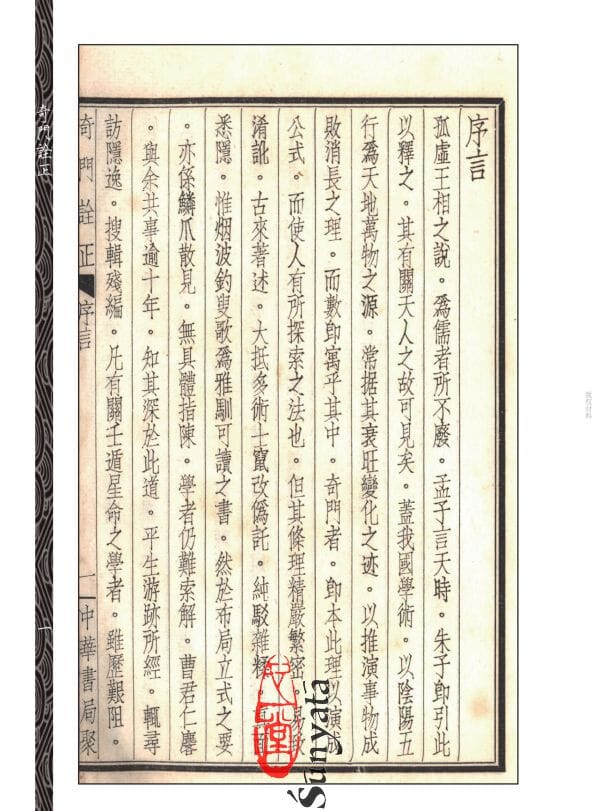 序言
孤虛王相之說。爲儒者所不廢。孟子言天時。朱子卽引此
以釋之。其有關天人之故可見矣。蓋我國學術。以陰陽五
行爲天地萬物之源。常据其衰旺變化之迹。以推演事物成
敗消長之理。而數卽寓乎其中。奇門者。卽本此理以演成
公式。而使人有所探索之法也。但其條理精嚴繁密。易致
淆訛。古來著述。大抵多術士竄改僞託。純駁雜糅。面
悉隱。惟烟波釣叟歌爲雅馴可讀之書。然於布局立式之要
。亦係鱗爪散見。無具體指陳。學者仍難索解。曹君仁麐
。與余共事逾十年。知其深於此道。平生游跡所經。輒尋
訪隱逸。搜輯殘編。凡有關壬遁星命之學者。雖歷艱阻。
奇門詮正 序言 一 中華書局聚
奇門詮正
一
Śūnyatā